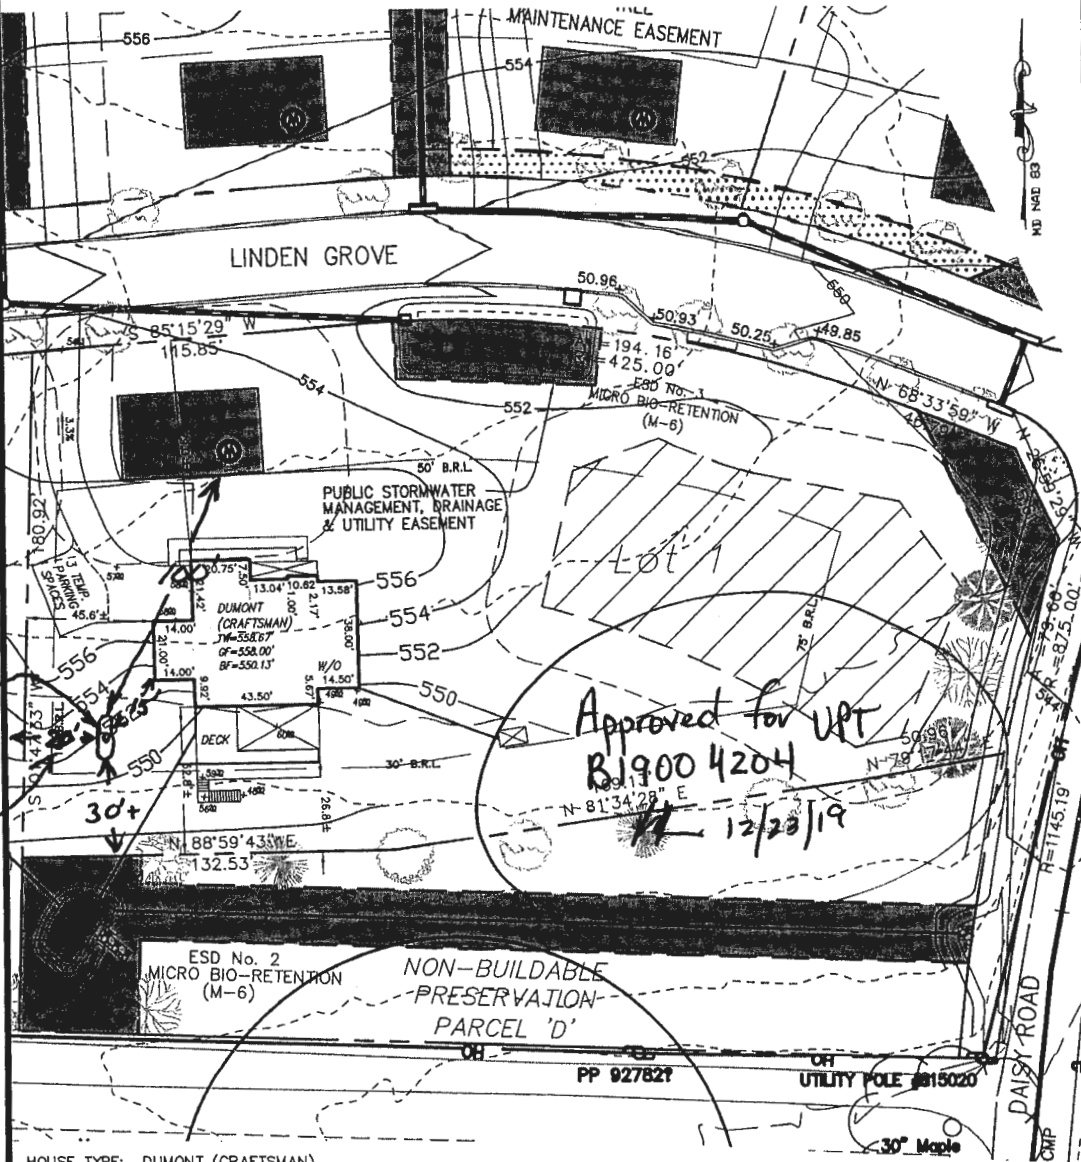 MAINTENANCE EASEMENT
556
554
552
MD NAD 83
LINDEN GROVE
50.96
50.93
50.25
49.85
550
S 85°15'29" W
115.85'
194.16'
425.00'
ESD No. 3
MICRO BIO-RETENTION
(M-6)
N 68°33'59" W
554
552
3.3%
50' B.R.L.
PUBLIC STORMWATER
MANAGEMENT, DRAINAGE
& UTILITY EASEMENT
180.92'
13 TEMP
PARKING
SPACES
45.6'±
Lot 1
75' B.R.L.
20.75'
7.50'
13.04'
10.62'
13.58'
1.00'
2.17'
21.42'
14.00'
21.00'
14.00'
38.00'
DUMONT
(CRAFTSMAN)
TW=558.67'
GF=558.00'
BF=550.13'
W/O
14.50'
5.67'
9.92'
43.50'
556
554
552
550
556
554
550
DECK
30' B.R.L.
26.8'±
30'+
Approved for UPT
B19004204
12/23/19
N 81°34'28" E
N 88°59'43" E
132.53'
R=875.00'
544
R=1145.19'
ESD No. 2
MICRO BIO-RETENTION
(M-6)
NON-BUILDABLE
PRESERVATION
PARCEL 'D'
OH
OH
OH
PP 927827
UTILITY POLE #815020
DAISY ROAD
30" Maple
CMP
HOUSE TYPE: DUMONT (CRAFTSMAN)